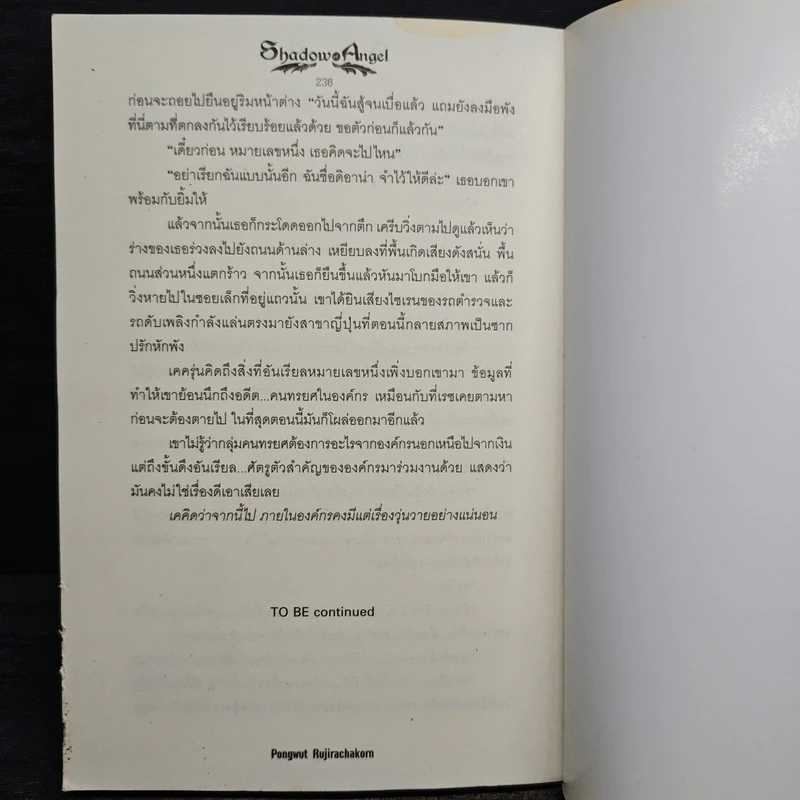 Shadow Angel
236
ก่อนจะถอยไปยืนอยู่ริมหน้าต่าง "วันนี้ฉันสู้จนเบื่อแล้ว แถมยังลงมือพัง
ที่นี่ตามที่ตกลงกันไว้เรียบร้อยแล้วด้วย ขอตัวก่อนก็แล้วกัน"
"เดี๋ยวก่อน หมายเลขหนึ่ง เธอคิดจะไปไหน"
"อย่าเรียกฉันแบบนั้นอีก ฉันชื่อดิอาน่า จำไว้ให้ดีล่ะ" เธอบอกเขา
พร้อมกับยิ้มให้
แล้วจากนั้นเธอก็กระโดดออกไปจากตึก เครีบวิ่งตามไปดูแล้วเห็นว่า
ร่างของเธอร่วงลงไปยังถนนด้านล่าง เหยียบลงที่พื้นเกิดเสียงดังสนั่น พื้น
ถนนส่วนหนึ่งแตกร้าว จากนั้นเธอก็ยืนขึ้นแล้วหันมาโบกมือให้เขา แล้วก็
วิ่งหายไปในซอยเล็กที่อยู่แถวนั้น เขาได้ยินเสียงไซเรนของรถตำรวจและ
รถดับเพลิงกำลังแล่นตรงมายังสาขาญี่ปุ่นที่ตอนนี้กลายสภาพเป็นซาก
ปรักหักพัง
เคครุ่นคิดถึงสิ่งที่อันเรียลหมายเลขหนึ่งเพิ่งบอกเขามา ข้อมูลที่
ทำให้เขาย้อนนึกถึงอดีต...คนทรยศในองค์กร เหมือนกับที่เรซเคยตามหา
ก่อนจะต้องตายไป ในที่สุดตอนนี้มันก็โผล่ออกมาอีกแล้ว
เขาไม่รู้ว่ากลุ่มคนทรยศต้องการอะไรจากองค์กรนอกเหนือไปจากเงิน
แต่ถึงขั้นดึงอันเรียล...ศัตรูตัวสำคัญขององค์กรมาร่วมงานด้วย แสดงว่า
มันคงไม่ใช่เรื่องดีเอาเสียเลย
เคคิดว่าจากนี้ไป ภายในองค์กรคงมีแต่เรื่องวุ่นวายอย่างแน่นอน
TO BE continued
Pongwut Rujirachakorn